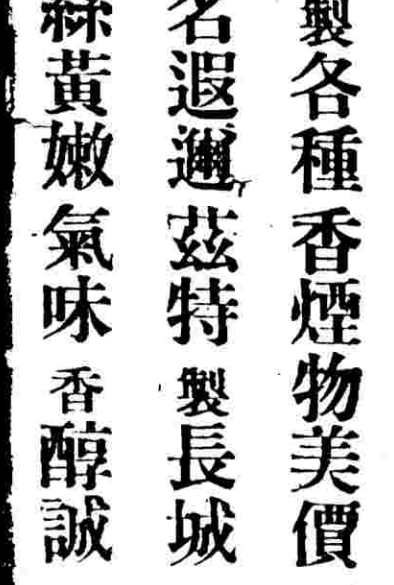 製各種香煙物美價
名遐邇茲特製長城
絲黃嫩氣味香醇誠